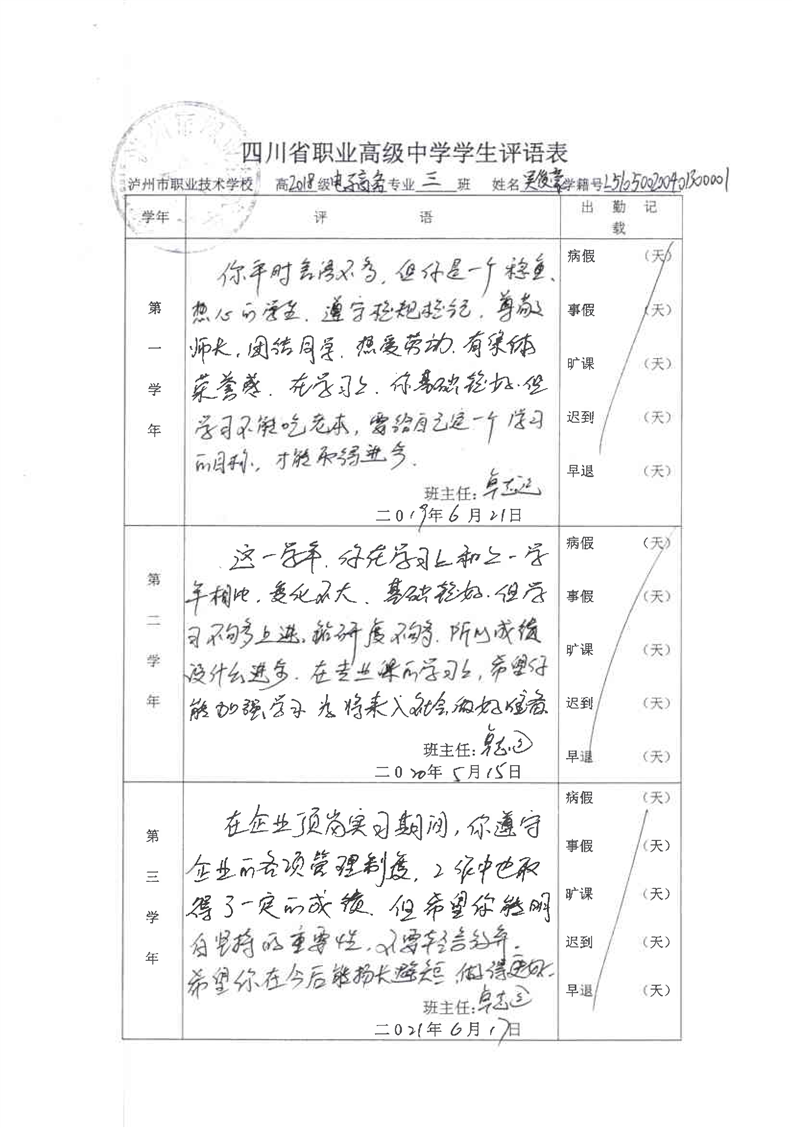 四川省职业高级中学学生评语表
泸州市职业技术学校 高2018级电子商务专业 三 班 姓名吴俊豪学籍号L510500200401300001
学年 评 语 出 勤 记 载
第一学年
你平时言语不多，但你是一个稳重、
热心的学生，遵守校规校纪，尊敬
师长，团结同学，热爱劳动，有集体
荣誉感，在学习上，你基础较好，但
学习不能吃老本，要给自己定一个学习
的目标，才能取得进步。
班主任：卓志远
二019年6月21日
病假 （天）
事假 （天）
旷课 （天）
迟到 （天）
早退 （天）
第二学年
这一学年，你在学习上和上一学
年相比，变化不大，基础较好，但学
习不够上进，钻研度不够，所以成绩
没什么进步。在专业课的学习上，希望你
能加强学习 为将来入社会做好准备
班主任：卓志远
二020年5月15日
病假 （天）
事假 （天）
旷课 （天）
迟到 （天）
早退 （天）
第三学年
在企业顶岗实习期间，你遵守
企业的各项管理制度，工作中也取
得了一定的成绩，但希望你能明
白坚持的重要性，不要轻言放弃，
希望你在今后能扬长避短，做得更好。
班主任：卓志远
二021年6月17日
病假 （天）
事假 （天）
旷课 （天）
迟到 （天）
早退 （天）